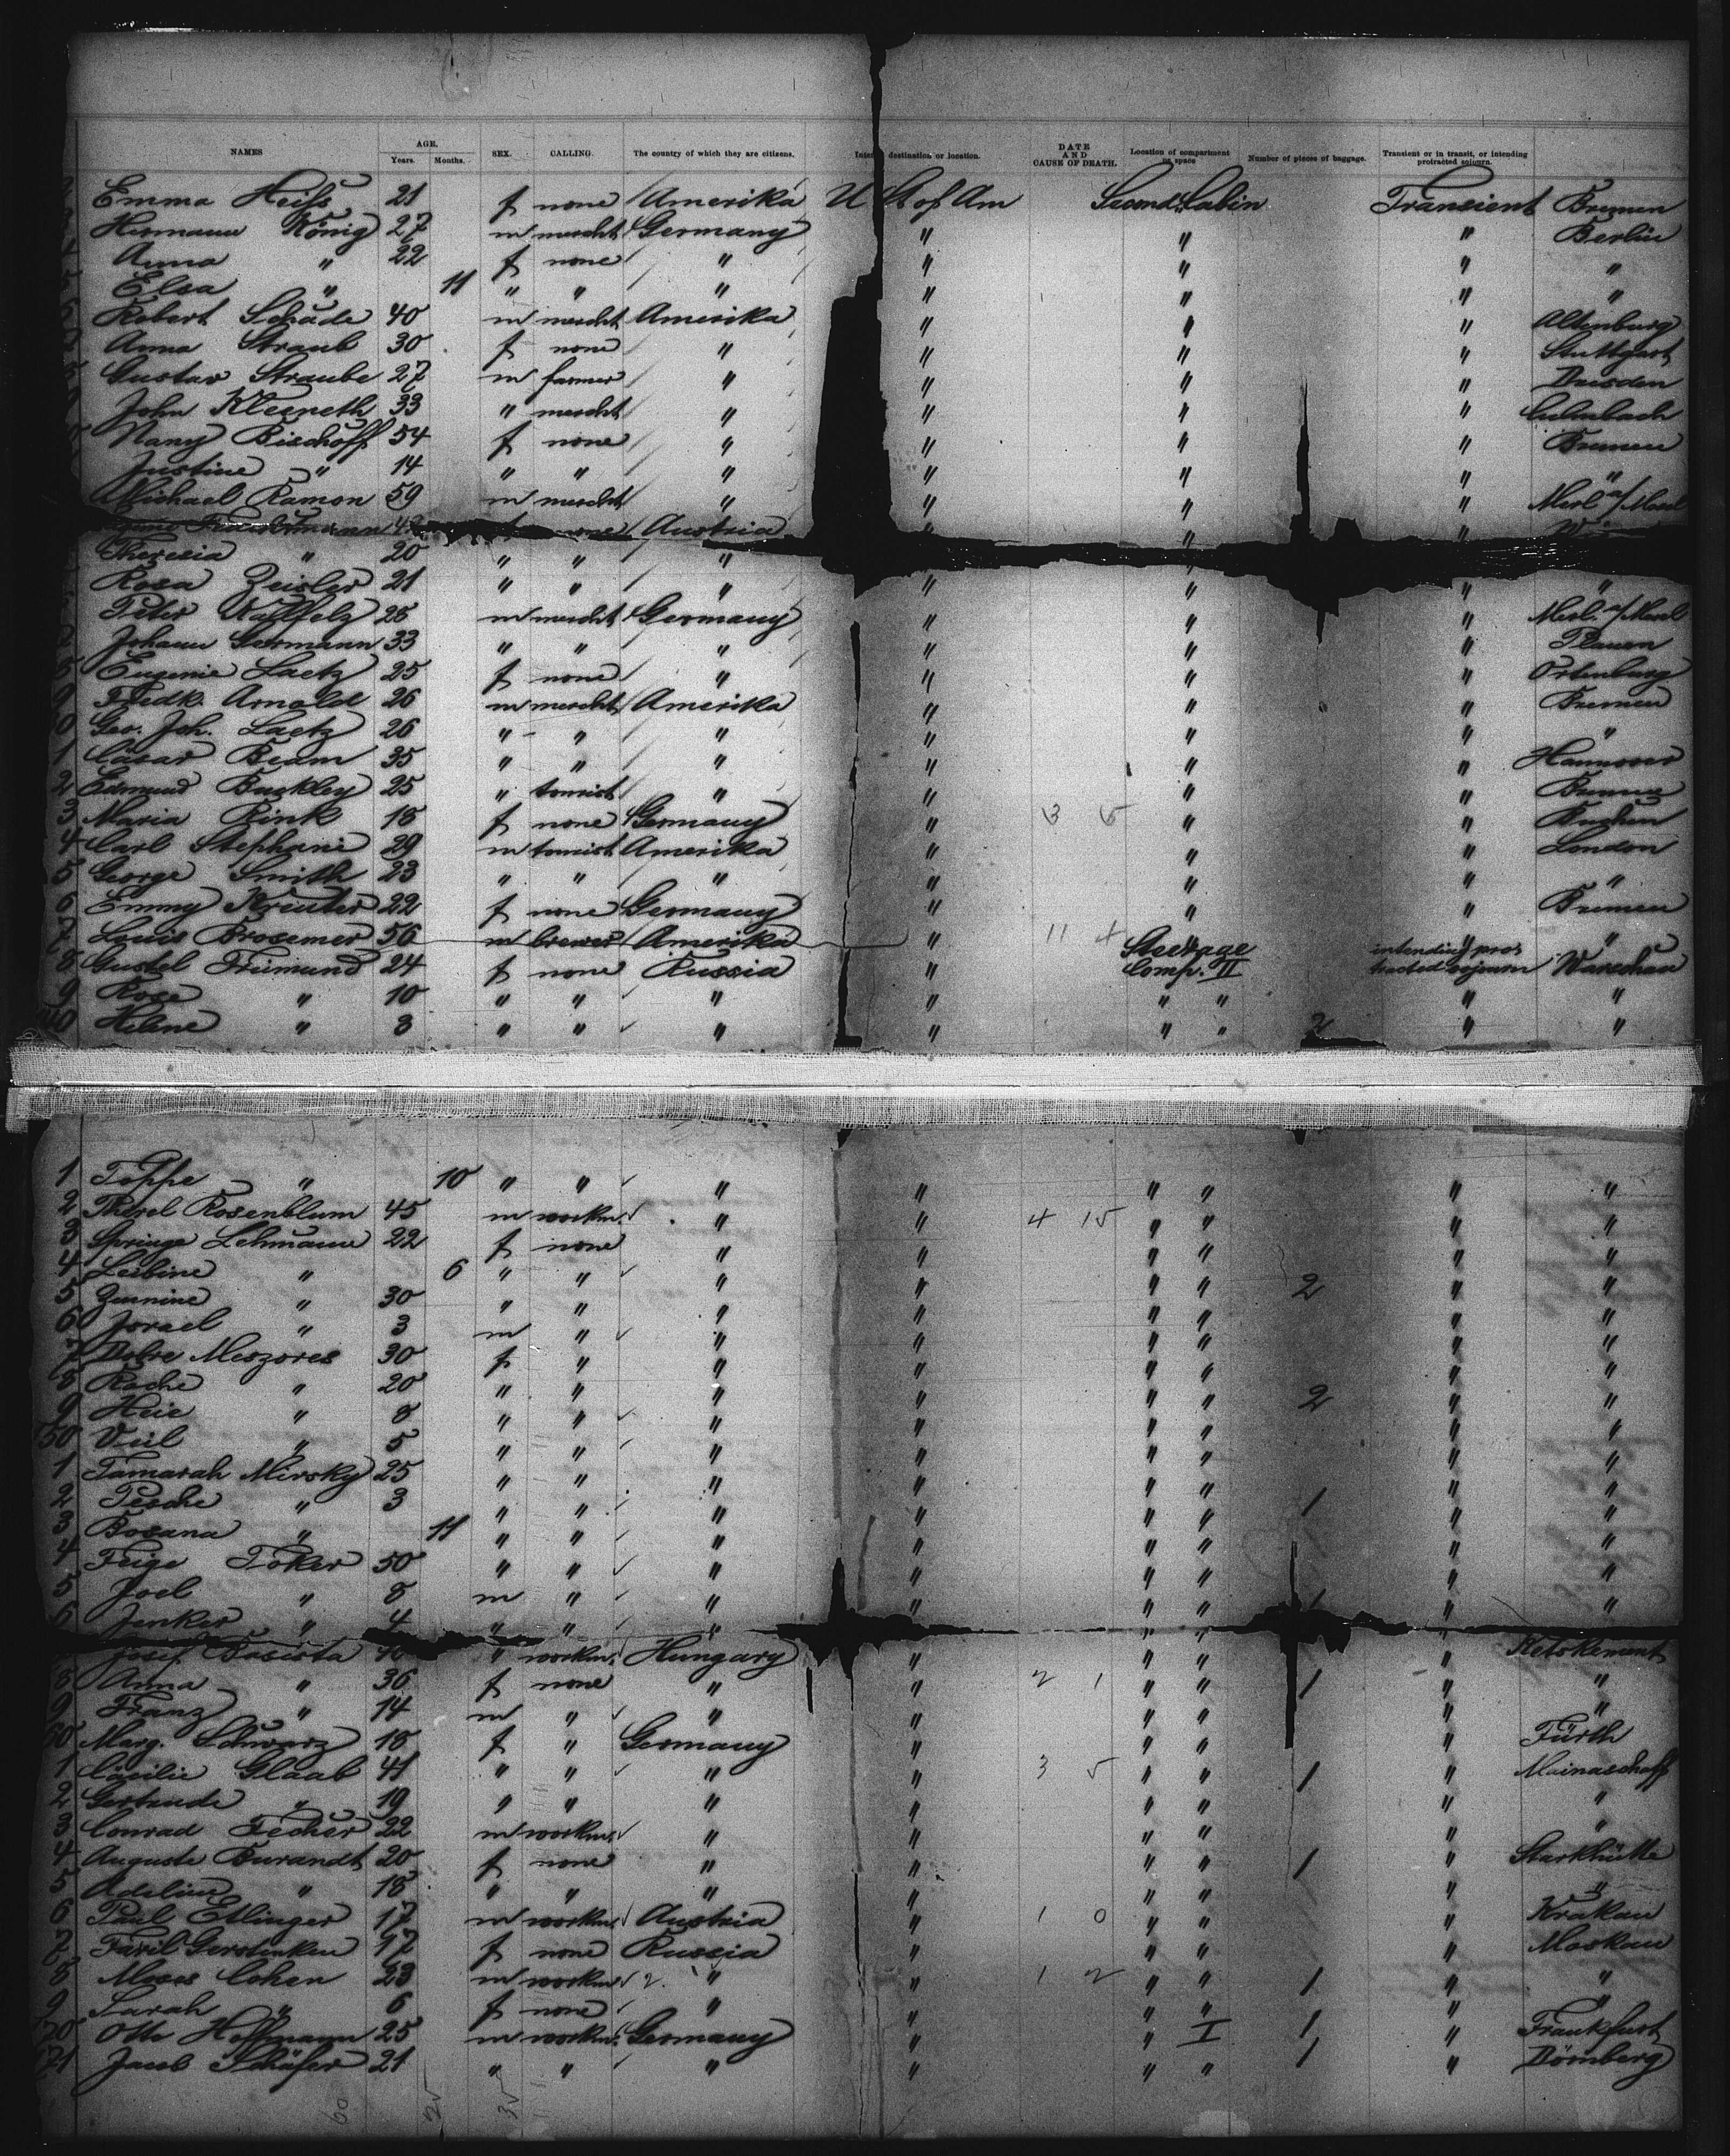 NAMES AGE. Years. Months. SEX. CALLING. The country of which they are citizens. destination or location. DATE AND CAUSE OF DEATH. Location of compartment or space Number of pieces of baggage. Transient or in transit, or intending protracted sojourn.
Emma Heiss 21 f none Amerika U St of Am Second Cabin Transient Bremen
Hermann König 27 m mercht Germany " " " Berlin
Anna " 22 f none " " " " "
Elsa " 11 " " " " " " "
Robert Schade 40 m mercht Amerika " " " Altenburg
Anna Straub 30 f none " " " " Stuttgart
Gustav Straube 27 m farmer " " " " Dresden
John 33 " mercht " " " " Culmbach
Nany Bischoff 54 f none " " " " Bremen
Justine " 14 " " " " " " "
Michael Ramon 59 m mercht " " " " Merl a/Mosel
none Austria " " "
Theresia " 20 " " "
Rosa Zeisler 21 " " " " " " "
Peter 28 m mercht Germany " " " Merl. a/Mosel
Johann Germann 33 " " " " " " Plauen
8 Eugenie Laetz 25 f none " " " " Ortenburg
9 Fredk. Arnold 26 m mercht Amerika " " " Bremen
0 Geo. Joh. Laetz 26 " " " " " " "
1 Cäsar Beam 35 " " " " " " Hannover
2 Edmund Buckley 25 " tourist " " " " Bremen
3 Maria Rink 18 f none Germany " 3 5 " "
4 Carl Stephani 29 m tourist Amerika " " " London
5 George Smith 23 " " " " " " "
6 Emmy Kreuter 22 f none Germany " " " Bremen
7 Louis Brosemer 56 m brewer Amerika " 11 4 " " "
8 Gustel Freimund 24 f none Russia " Steerage Comp. II intending protracted sojourn Warschau
9 Rose " 10 " " " " " " " "
40 Helene " 3 " " " " " " 2 " "
1 Toppe " 10 " " " " " " " "
2 Therel Rosenblum 45 m workm. " " 4 15 " " " "
3 Springe Lehmann 22 f none " " " " " "
4 Leibine " 6 " " " " " " 2 " "
5 Zurnine " 30 " " " " " " " "
6 Israel " 3 m " " " " " " "
7 Dobre Meszores 30 f " " " " " " "
8 Rache " 20 " " " " " " 2 " "
9 Heie " 8 " " " " " " " "
50 Viil " 5 " " " " " " " "
1 Tamarah Mirsky 25 " " " " " " " "
2 Pesche " 3 " " " " " " 1 " "
3 Bosana " 11 " " " " " " " "
4 Feige Toker 50 " " " " " " " "
5 Joel " 8 m " " " " " 1 " "
6 Jenker " 4 " " " " " " " "
Josef " workm. Hungary " " " " Ketskement
8 Anna " 36 f none " " 2 1 " " 1 " "
9 Franz " 14 m " " " " " " "
60 Marg. Schwarz 18 f " Germany " " " " Fürth
1 Cäcilie Glaab 41 " " " " 3 5 " " 1 " Mainaschaff
2 Gertrude " 19 " " " " " " " "
3 Conrad Fecher 22 m workm. " " " " " "
4 Auguste Burandt 20 f none " " " " 1 " Starkhütte
5 Adeline " 18 " " " " " " " "
6 Paul Etlinger 17 m workm. Austria " 1 0 " " " Krakau
7 Faril Gerstenken 17 f none Russia " " " " Moskau
8 Moses Cohen 23 m workm. 2 " " 1 2 " " 1 " "
9 Sarah " 6 f none " " " " " "
70 Otto Hoffmann 25 m workm. Germany " " I 1 " Frankfurt
71 Jacob Schäfer 21 " " " " " " 1 " Dörnberg
60 25 35